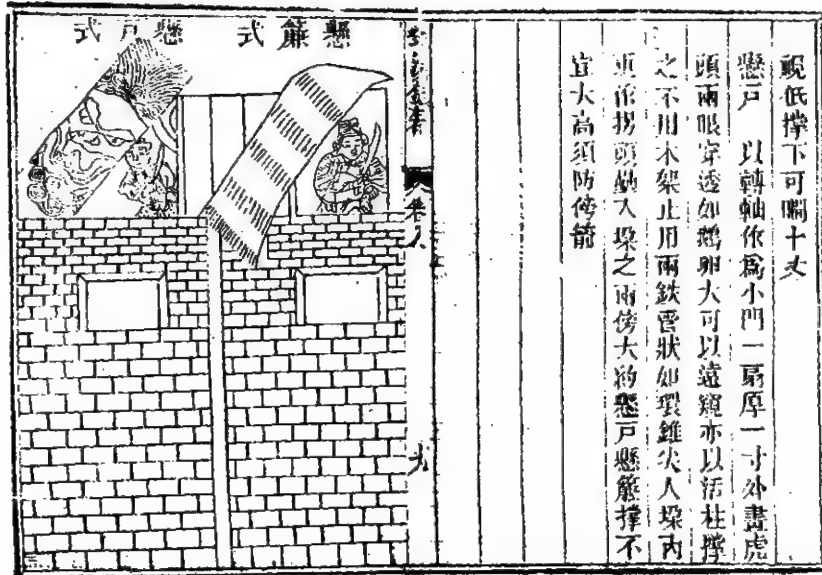 覘低撑下可矙十丈
懸戶　以轉軸作爲小門一扇厚一寸外畫虎
頭兩眼穿透如鵝卵大可以遠窺亦以活柱撑
之不用木架止用兩鉄圈狀如環錐尖入垜內
更作拐頭勘入垜之兩傍大約懸戶懸簾撑不
宜大高須防傍箭
全書
卷八
九
懸簾式
懸戶式